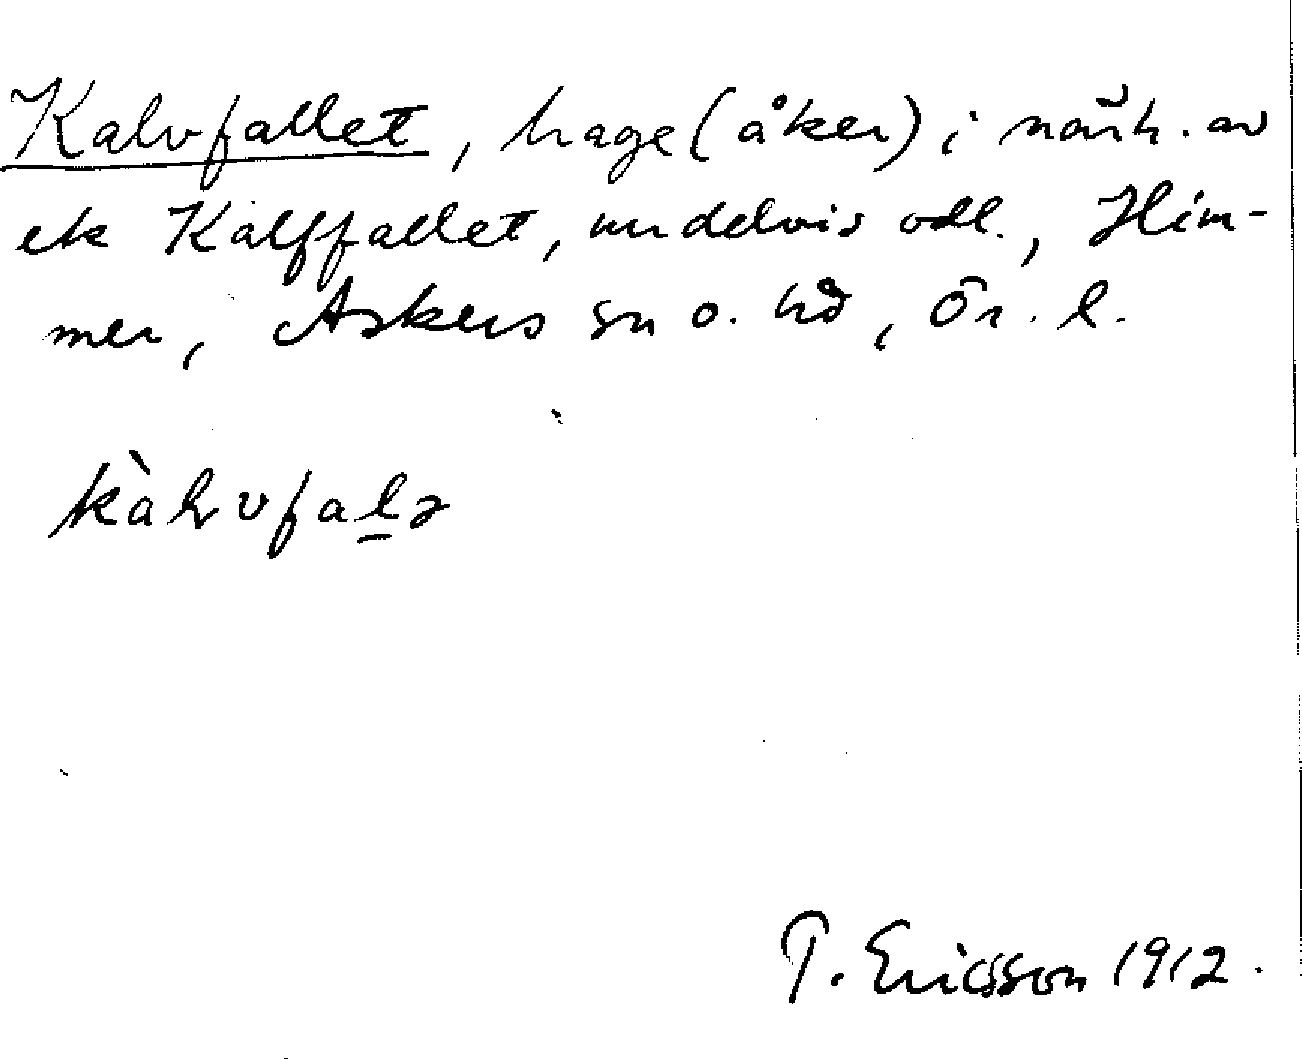 Kalvfallet, hage (åker) i närh. av
ek Kalffallet, nu delvis odl., Him-
mer, Askers sn o. hd, Ör. l.
kàlvfalə
G. Ericsson 1912.